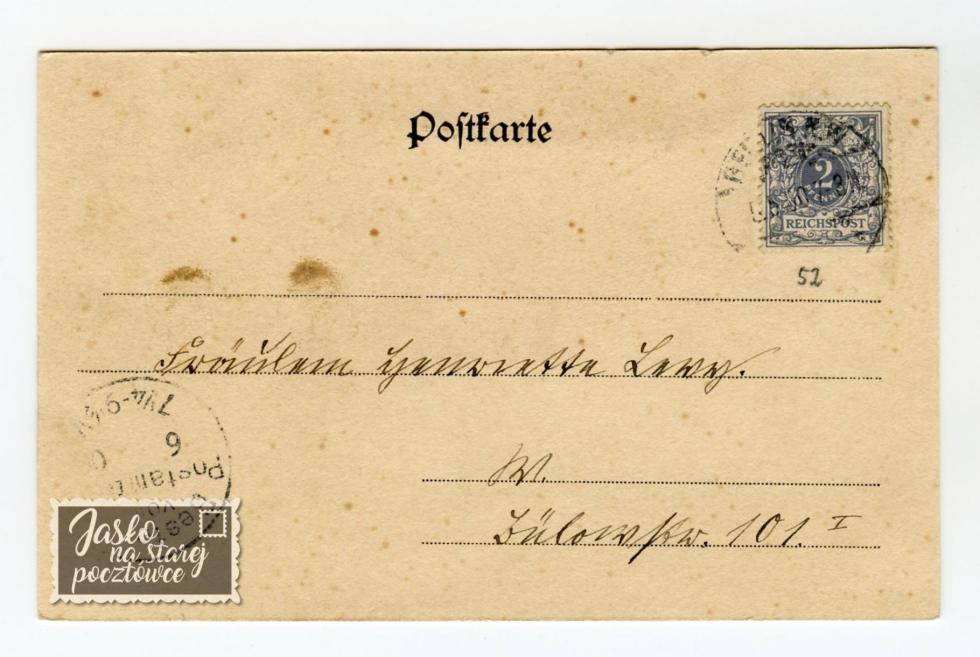 Postkarte
2
REICHSPOST
52
Fräulein Henriette Levy.
W.
Bülowstr. 101. I
7¼-9¼N
6
Postamt
Jasło
na starej
pocztówce